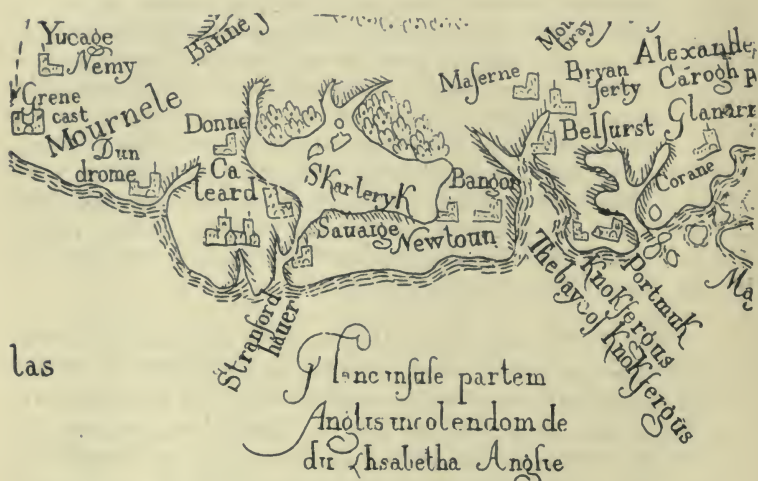 Yucage
Nemy
Grene
cast
Mournele
Dun
drome
Banne
Donne
Ca
leard
Skarleryk
Sauaige
Newtoun
Bangor
Maſerne
Mou
bray
Bryan
ferty
Belfurst
Alexande
Carogh
Glanarr
Corane
Portmuk
Knokfergus
The bay of Knokfergus
Stranford
hauer
las
Hanc insule partem
Anglis incolendom de
dit Elisabetha Anglie